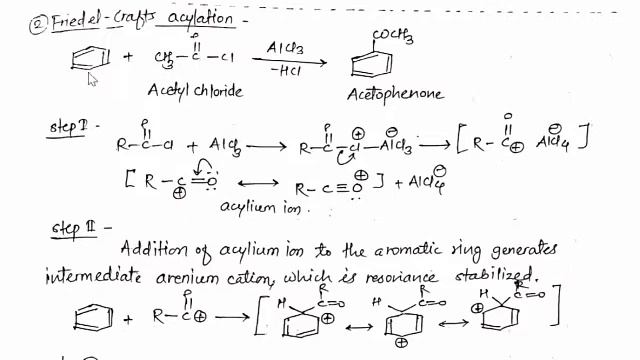 ② Friedel-Crafts acylation -
+ CH3 - C - Cl AlCl3 -HCl COCH3
O
Acetyl chloride Acetophenone
step I -
R-C-Cl + AlCl3 → R-C-Cl-AlCl3 → [ R-C AlCl4 ]
[ R-C=O ↔ R-C≡O ] + AlCl4
acylium ion.
step II -
Addition of acylium ion to the aromatic ring generates
intermediate arenium cation, which is resonance stabilized.
+ R-C⊕ → [ H R C=O ⊕ ↔ H R C=O ⊕ ↔ H R C=O ⊕ ]